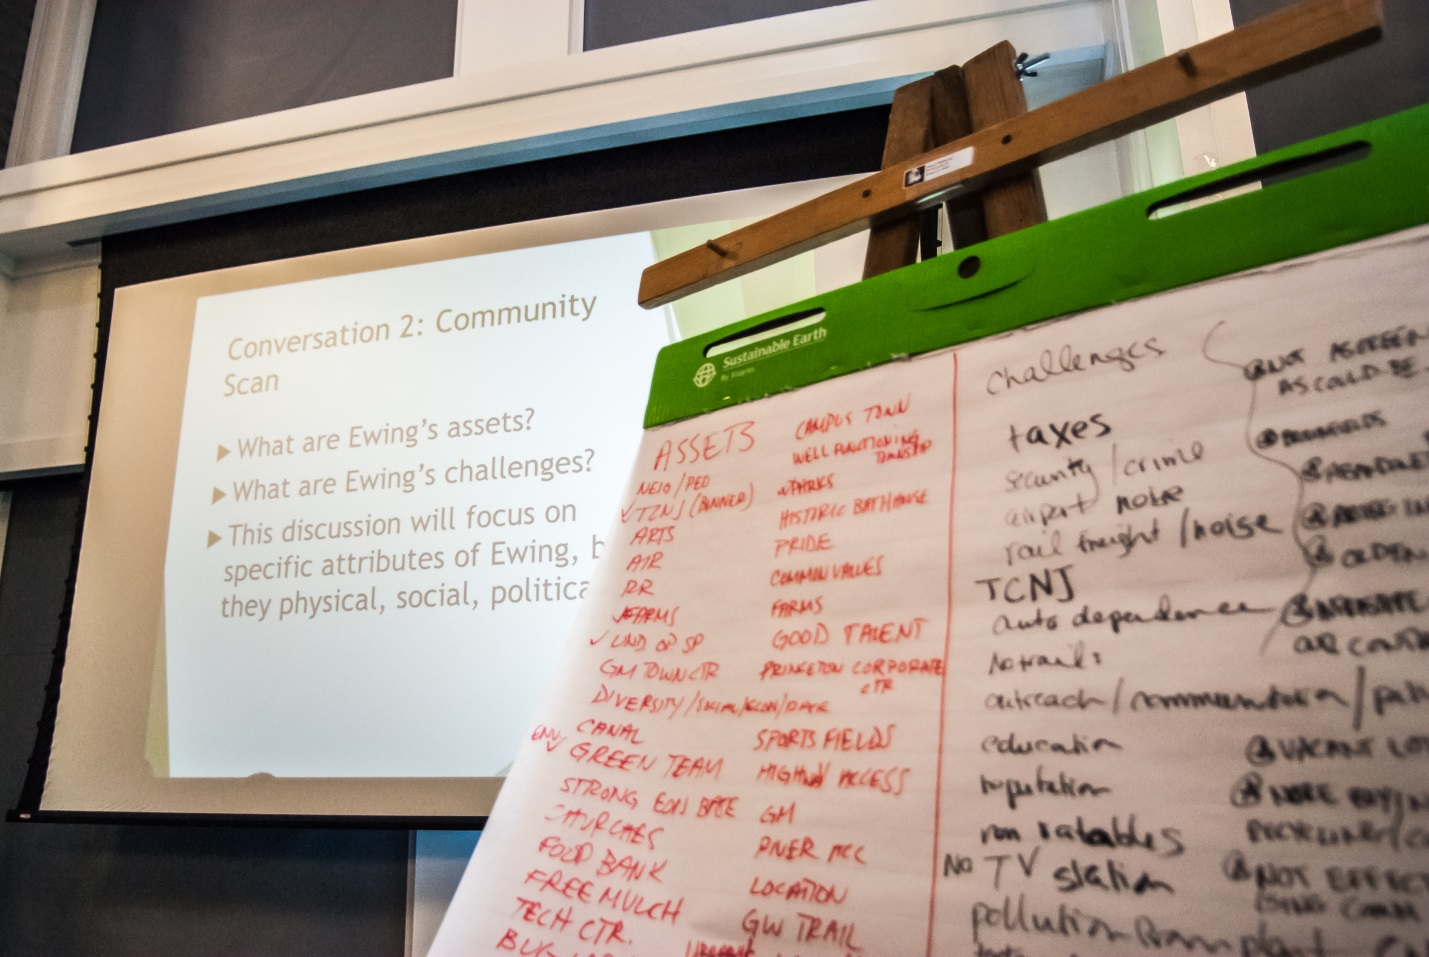 Conversation 2: Community
Scan
What are Ewing's assets?
What are Ewing's challenges?
This discussion will focus on
specific attributes of Ewing, b
they physical, social, politica
Sustainable Earth
By Staples
ASSETS
NEIG/PED
TCNJ (DINNER)
ARTS
AIR
RR
FARMS
UND. OP SP
GM TOWN CTR
DIVERSITY
ENV
CANAL
GREEN TEAM
STRONG EON BASE
CHURCHES
FOOD BANK
FREE MULCH
TECH CTR.
CAMPUS TOWN
WELL FUNCTIONING
TOWNSHIP
PARKS
HISTORIC BATHHOUSE
PRIDE
COMMON VALUES
FARMS
GOOD TALENT
PRINCETON CORPORATE
CTR
SPORTS FIELDS
HIGHWAY ACCESS
GM
LOCATION
GW TRAIL
challenges
taxes
security/crime
airport noise
rail freight/noise
TCNJ
auto dependence
No trails
outreach/communication/
education
reputation
non ratables
No TV station
pollution from plant
NOT AS GREEN
AS COULD BE
BROWNFIELDS
VACANT LOT
MORE BUYIN
NOT EFFECT